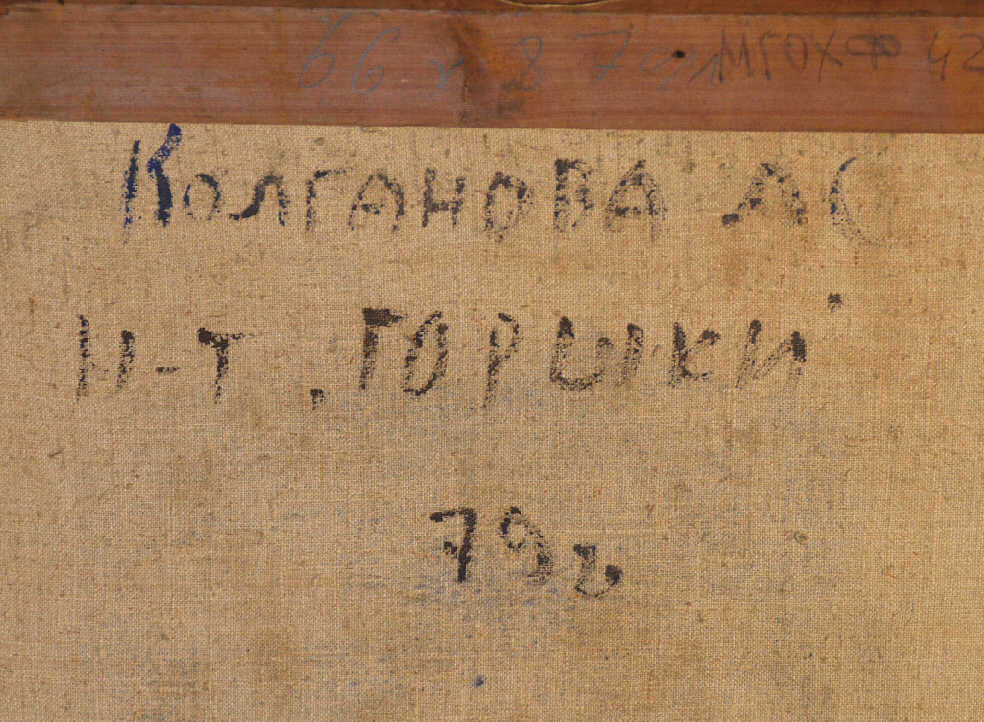 66 х 87 см МГОХФ 42
КОЛГАНОВА ЛС
Н-Т. ГОРШКИ
79г